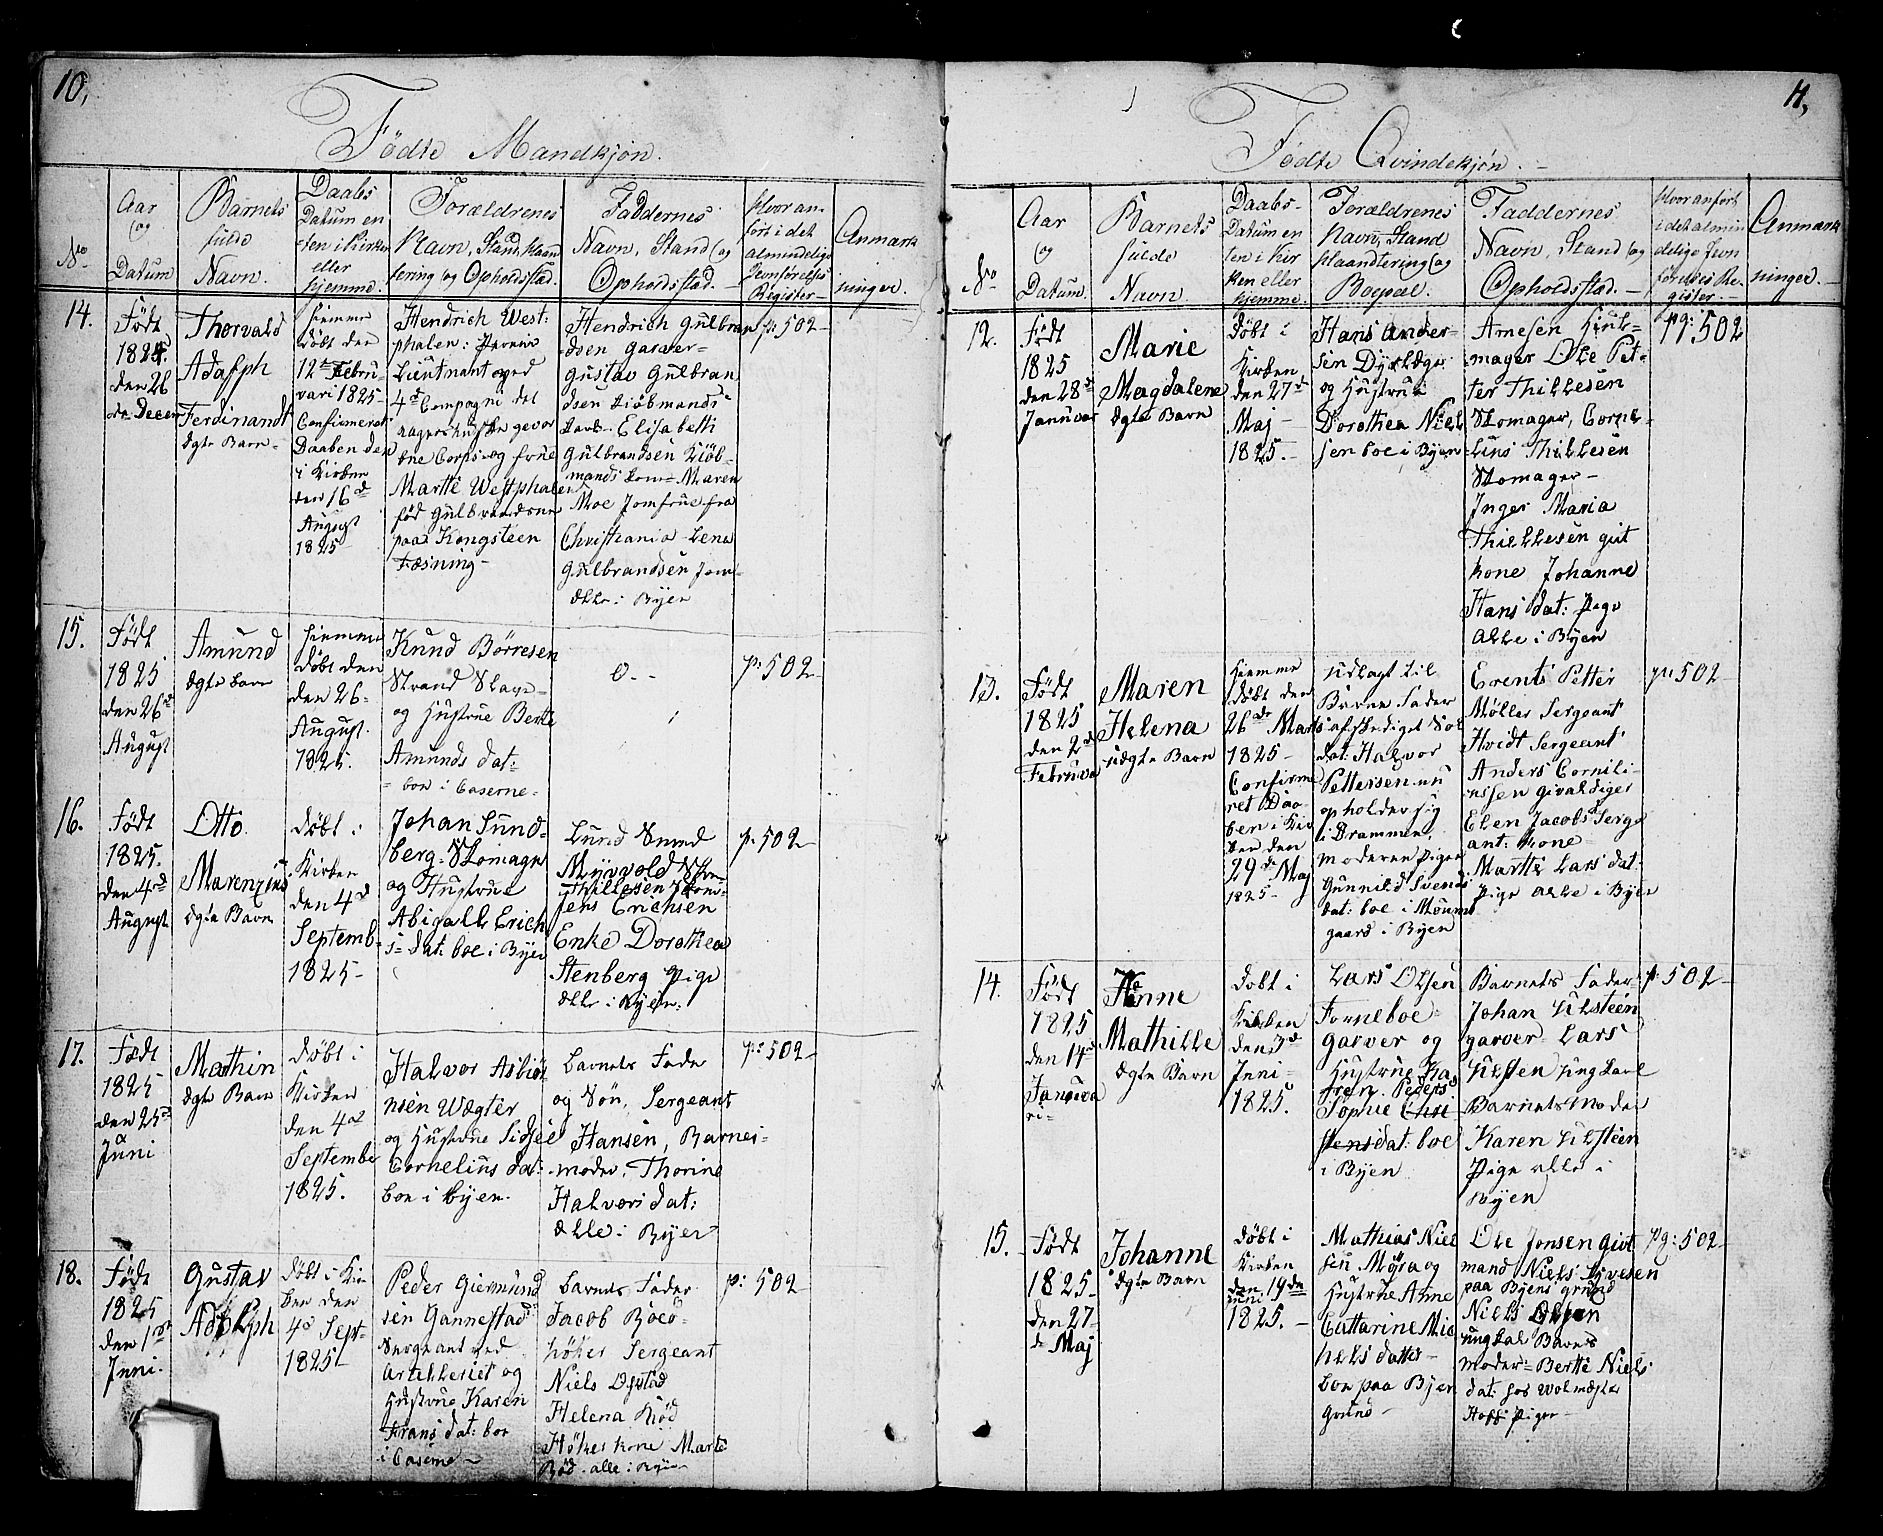 10,
Fødte Mandkjøn.
No
Aar
og
Datum
Barnets
fulde
Navn.
Daabs
Datum en
ten i Kirken
eller
hjemme.
Forældrenes
Navn, Stand, Haan
tering og Opholdsstad.
Faddernes
Navn, Stand og
Opholdsstad.
Hvor an-
ført i det
almindelige
Jevnførelses
Register
Anmærk
ninger.
14.
Født
1824
den 26
de Decem
Thorvald
Adolph
Ferdinandt
ægte Barn-
Hiemme
døbt den
12te Febru-
vari 1825-
Confirmeret
Daaben den
i Kirken
den 16d
August
1825-
Hendrich West-
phalen: Premier
Lieutnant ved
4d Compagni det
Aggershuske gevor
bne Corps- og frue
Marthe Westphalen
fød Gulbrandsen
paa Kongsteen
Fæsning-
Hendrich Gulbran
dsen Garver-
Gustav Gulbran
dsen Kiøbmands-
Elisabeth
Gulbrandsen Kiøb-
mands Kone- Maren
Moe Jomfrue fra
Christiania- Lena
Gulbrandsen Jom-
alle i Byen
p: 502-
15.
Født
1825
den 26d
August
Amund
ægte barn
Hiemme
døbt den
den 26-
August.
1825.
Knud Børresen
Strand Slave-
og Hustrue Berte
Amunds dat:
boe i Caserne-
0.-
p: 502-
16.
Født
1825.
den 4d
August
Otto
Marenzius
ægte Barn
døbt i
Kirken
den 4d
Septemb-
1825-
Johan Sund-
berg- Skomager
og Hustrue
Abigall Erich
s- dat: boe i Byen
Lund Smed
Myrvold
Thillesen
Jens Erichsen
Enke Dorothea
Stenberg Pige
alle i Byen.
p: 502-
17.
Født
1825
den 25d
Juni
Mathin
ægte Barn
døbt i
Kirken
den 4d
September
1825.
Halvor Asbiør
nsen Wægter
og Hustrue Sidsele
Cornelius dat:
boe i byen.
barnets Fader
og Søn, Sergeant
Hansen, Barnes-
moder, Thorine
Halvors dat:
alle i Byen
p: 502-
18.
Født
1825
den 1ste
Juni.
Gustav
Adolph
døbt i Kir
ken den
4d Sept-
1825
Peder Giermund
sen Gannestad
Sergeant ved
Artelleriet og
Hustrue Karen
Frans dat: boe
i Caserne-
barnets Fader
Jacob Bioeø-
høker Sergeant
Niels Opstad
Helena Kiød
Høkes kone Marte
Bød- alle i Byen
p: 502
11,
Fødte Qvindekjøn.-
No
Aar
og
Datum.
Barnets
fulde
Navn.
Daabs-
Datum en
ten i Kir
ken eller
hjemme.
Forældrenes
Navn, Stand
Haandtering og
Boepæl.
Faddernes
Navn, Stand og
Opholdsstad.-
Hvor anført
i det almin
delige Jevn
førelses Re-
gister.-
Anmærk
ninger.-
12.
Født
1825
den 28d
Januvar
Marie
Magdalene
ægte Barn
døbt i
Kirken
den 27d
Maj-
1825.-
Hans Ander-
sen Dyrlæge
og Hustrue
Dorothea Niel
sen boe i Byen
Arnesen Hiul-
mager Ole Pet-
ter Thillesen
Skomager, Corne-
lius Thillesen
Skomager-
Inger Maria
Thillesen gift
kone Johanne
Hans dat: Pige
alle i Byen
pg: 502
13.
Født
1825
den 2d
Februva
Maren
Helena
uægte Barn
Hiemme
døbt den
26de Marts
1825-
Confirme
ret Daa-
ben i Kir
ken den
29de Maj
1825-
Udlagt til
Barne Fader
afskediget Sol
dat: Halvor
Pettersen nu
opholder sig
i Drammen,
moderen Pigen
Gunnild Svends
dat: boe i Mourns
gaard i Byen
Erents Petter
Møller Sergeant
Hvidt Sergeant
Anders Cornili-
ussen givaldiger
Elen Jacobs Serge
ant: kone-
Marthe Lars dat:
Pige alle i Byen
p: 502-
14.
Født
1825
den 14d
Januva
ri-
Hanne
Mathille
ægte Barn
Døbt i
Kirken
den 3d
Juni-
1825.
Lars Olsen
Forneboe-
garver og
Hustrue Ka
tren. Peders
Sophie Chri
stensdat: boe
i Byen
Barnets Fader
Johan Ulsteen
garver- Lars
Ulsten Ung karl
Barnets Moder
Karen Ulsteen
Pige alle i
Byen
p: 502-
15.
Født
1825-
den 27-
de Maj
Johanne
ægte Barn
døbt i
Kirken
den 19de
Juni
1825.-
Mathias Niel
sen. Myra og
Hustrue Anne
Cattarine Mic
hels datter-
boe paa Byen
Grund-
Ole Jonsen givt
mand Niels Ivesen
paa Byens grund
Niels Olsen
ungkal Barnets
moder- Berthe Niels
dat: hos Wolmæster
Hoff: Pige-
pg: 502-